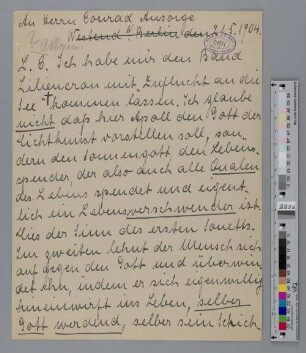 An Herrn Conrad Ansorge
Westend Berlin den 21.5.1904.
L. C. Ich habe mir den Band
Liliencron mit Zuflucht an die
See kommen lassen. Ich glaube
nicht daß hier Apoll den Gott der
Dichtkunst vorstellen soll, son-
dern den Sonnengott den Lebens-
spender, der also auch alle Qualen
des Lebens spendet und eigent-
lich ein Lebensverschwender ist.
Dies der Sinn des ersten Sonetts.
Im zweiten lehnt der Mensch sich
auf gegen den Gott und überwin-
det ihn, indem er sich eigenwillig
hineinwirft ins Leben, selber
Gott werdend, selber sein Schick-